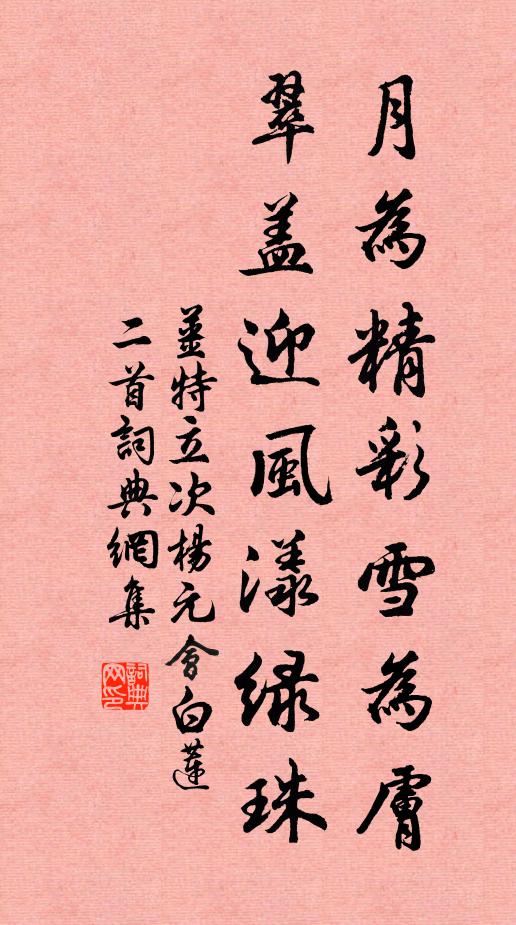 月為精彩雪為膚
翠盖迎風漾綠珠
姜特立次楊元會白蓮
二首詞典網集
詞典网印